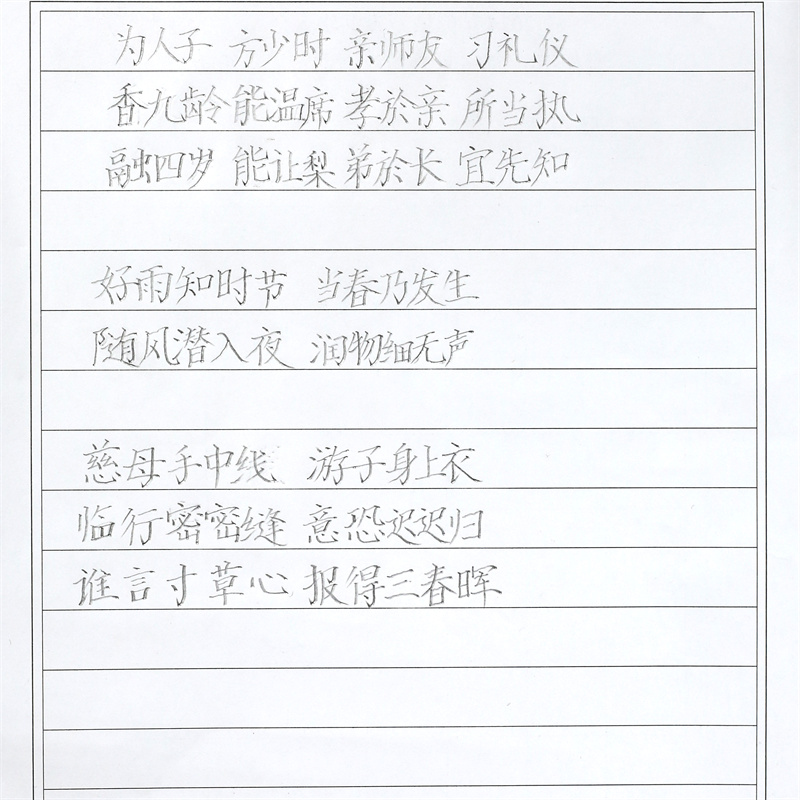 为人子 方少时 亲师友 习礼仪
香九龄 能温席 孝於亲 所当执
融四岁 能让梨 弟於长 宜先知
好雨知时节 当春乃发生
随风潜入夜 润物细无声
慈母手中线 游子身上衣
临行密密缝 意恐迟迟归
谁言寸草心 报得三春晖